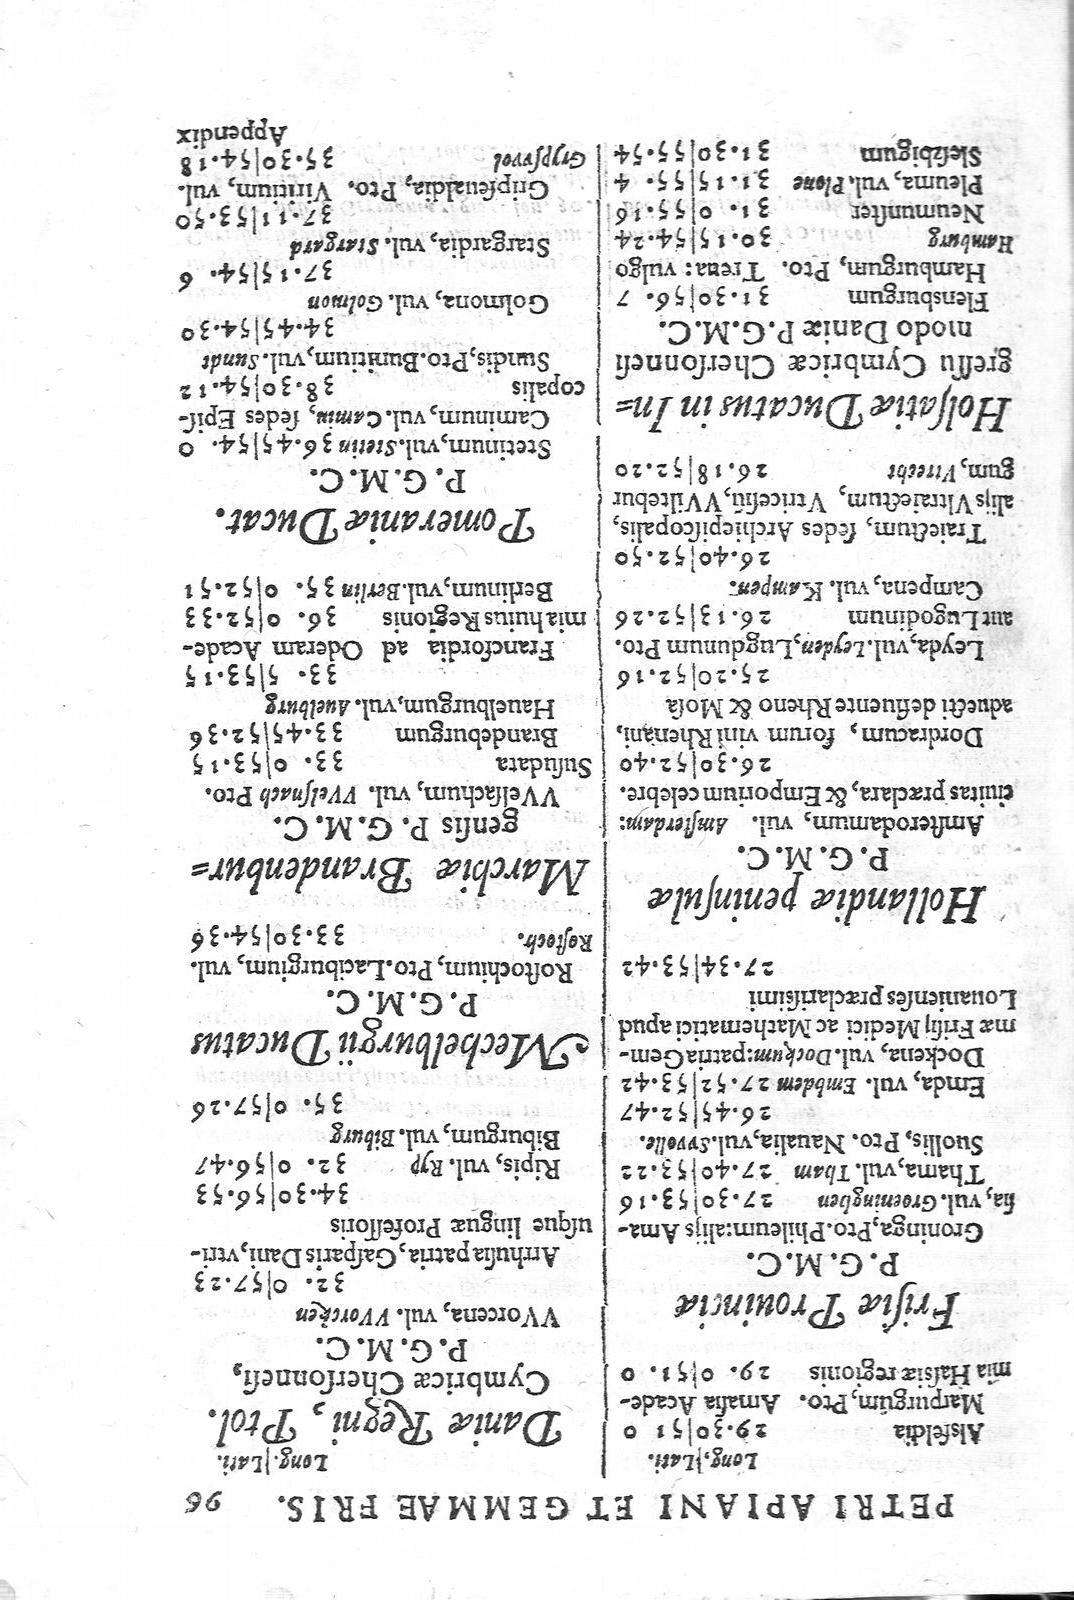 PETRI APIANI ET GEMMAE FRIS. 96
Long,|Lati.
Alsfeldia 29.30|51 0
Marpurgũm, Pto. Amaſia Acade-
mia Haſsiæ regionis 29. 0|51. 0
Friſiæ Prouinciæ
P.G.M.C.
Groninga, Pto. Phileum: alijs Ama-
ſia, vul. Groeninghen 27.30|53.16
Thama, vul. Tham 27.40|53.22
Suollis, Pto. Naualia, vul. Svvolle.
26.45|52.47
Emda, vul. Embdem 27.52|53.42
Dockena, vul. Dockum: patria Gem-
mæ Friſij Medici ac Mathematici apud
Louanienſes præclariſsimi
27.34|53.42
Hollandiæ peninſulæ
P.G.M.C.
Amſterodamum, vul. Amſterdam:
ciuitas præclara, & Emporium celebre.
26.30|52.40
Dordracum, forum vini Rhenani,
aduecti defluente Rheno & Moſa
25.20|52.16
Leyda, vul. Leyden, Lugdunum Pto.
aut Lugodinum 26.13|52.26
Campena, vul. Kampen.
26.40|52.50
Traiectum, ſedes Archiepiſcopalis,
alijs Vltraiectum, Vtriceſiũ, VViltebur
gum, Vtrecht 26.18|52.20
Holſatiæ Ducatus in In=
greſſu Cymbricæ Cherſonneſi
modo Daniæ P.G.M.C.
Flensburgum 31.30|56. 7
Hamburgum, Pto. Treua: vulgo
Hamburg 30.15|54.24
Neumunſter 31. 0|55.16
Pleuma, vul. Plone 31.15|55. 4
Sleſzbigum 31.30|55.54
Long.|Lati.
Daniæ Regni, Ptol.
Cymbricæ Cherſonneſi,
P.G.M.C.
VVorcena, vul. VVorcken
32. 0|57.23
Arrhuſia patria, Gaſparis Dani, vtri-
uſque linguæ Profeſſoris
34.30|56.53
Ripis, vul. Ryp 32. 0|56.47
Biburgum, vul. Biburg
35. 0|57.26
Mechelburgii Ducatus
P.G.M.C.
Roſtochium, Pto. Laciburgium, vul.
Roſtoch. 33.30|54.36
Marchiæ Brandenbur=
genſis P.G.M.C.
VVelſachum, vul. VVelſnach Pto.
Suſudata 33. 0|53.15
Brandeburgum 33.45|52.36
Hauelburgum, vul. Auelburg
33. 5|53.15
Francfordia ad Oderam Acade-
mia huius Regionis 36. 0|52.33
Berlinum, vul. Berlin 35. 0|52.51
Pomeraniæ Ducat.
P.G.M.C.
Stetinum, vul. Stetin 36.45|54. 0
Caminum, vul. Camin, ſedes Epiſ-
copalis 38.30|54.12
Sundis, Pto. Bunitium, vul. Sundt
34.45|54.30
Golmona, vul. Golmon
37.15|54. 6
Stargardia, vul. Stargard
37.11|53.50
Gripſeualdia, Pto. Viritium, vul.
Grypſvvol 35.30|54.18
Appendix